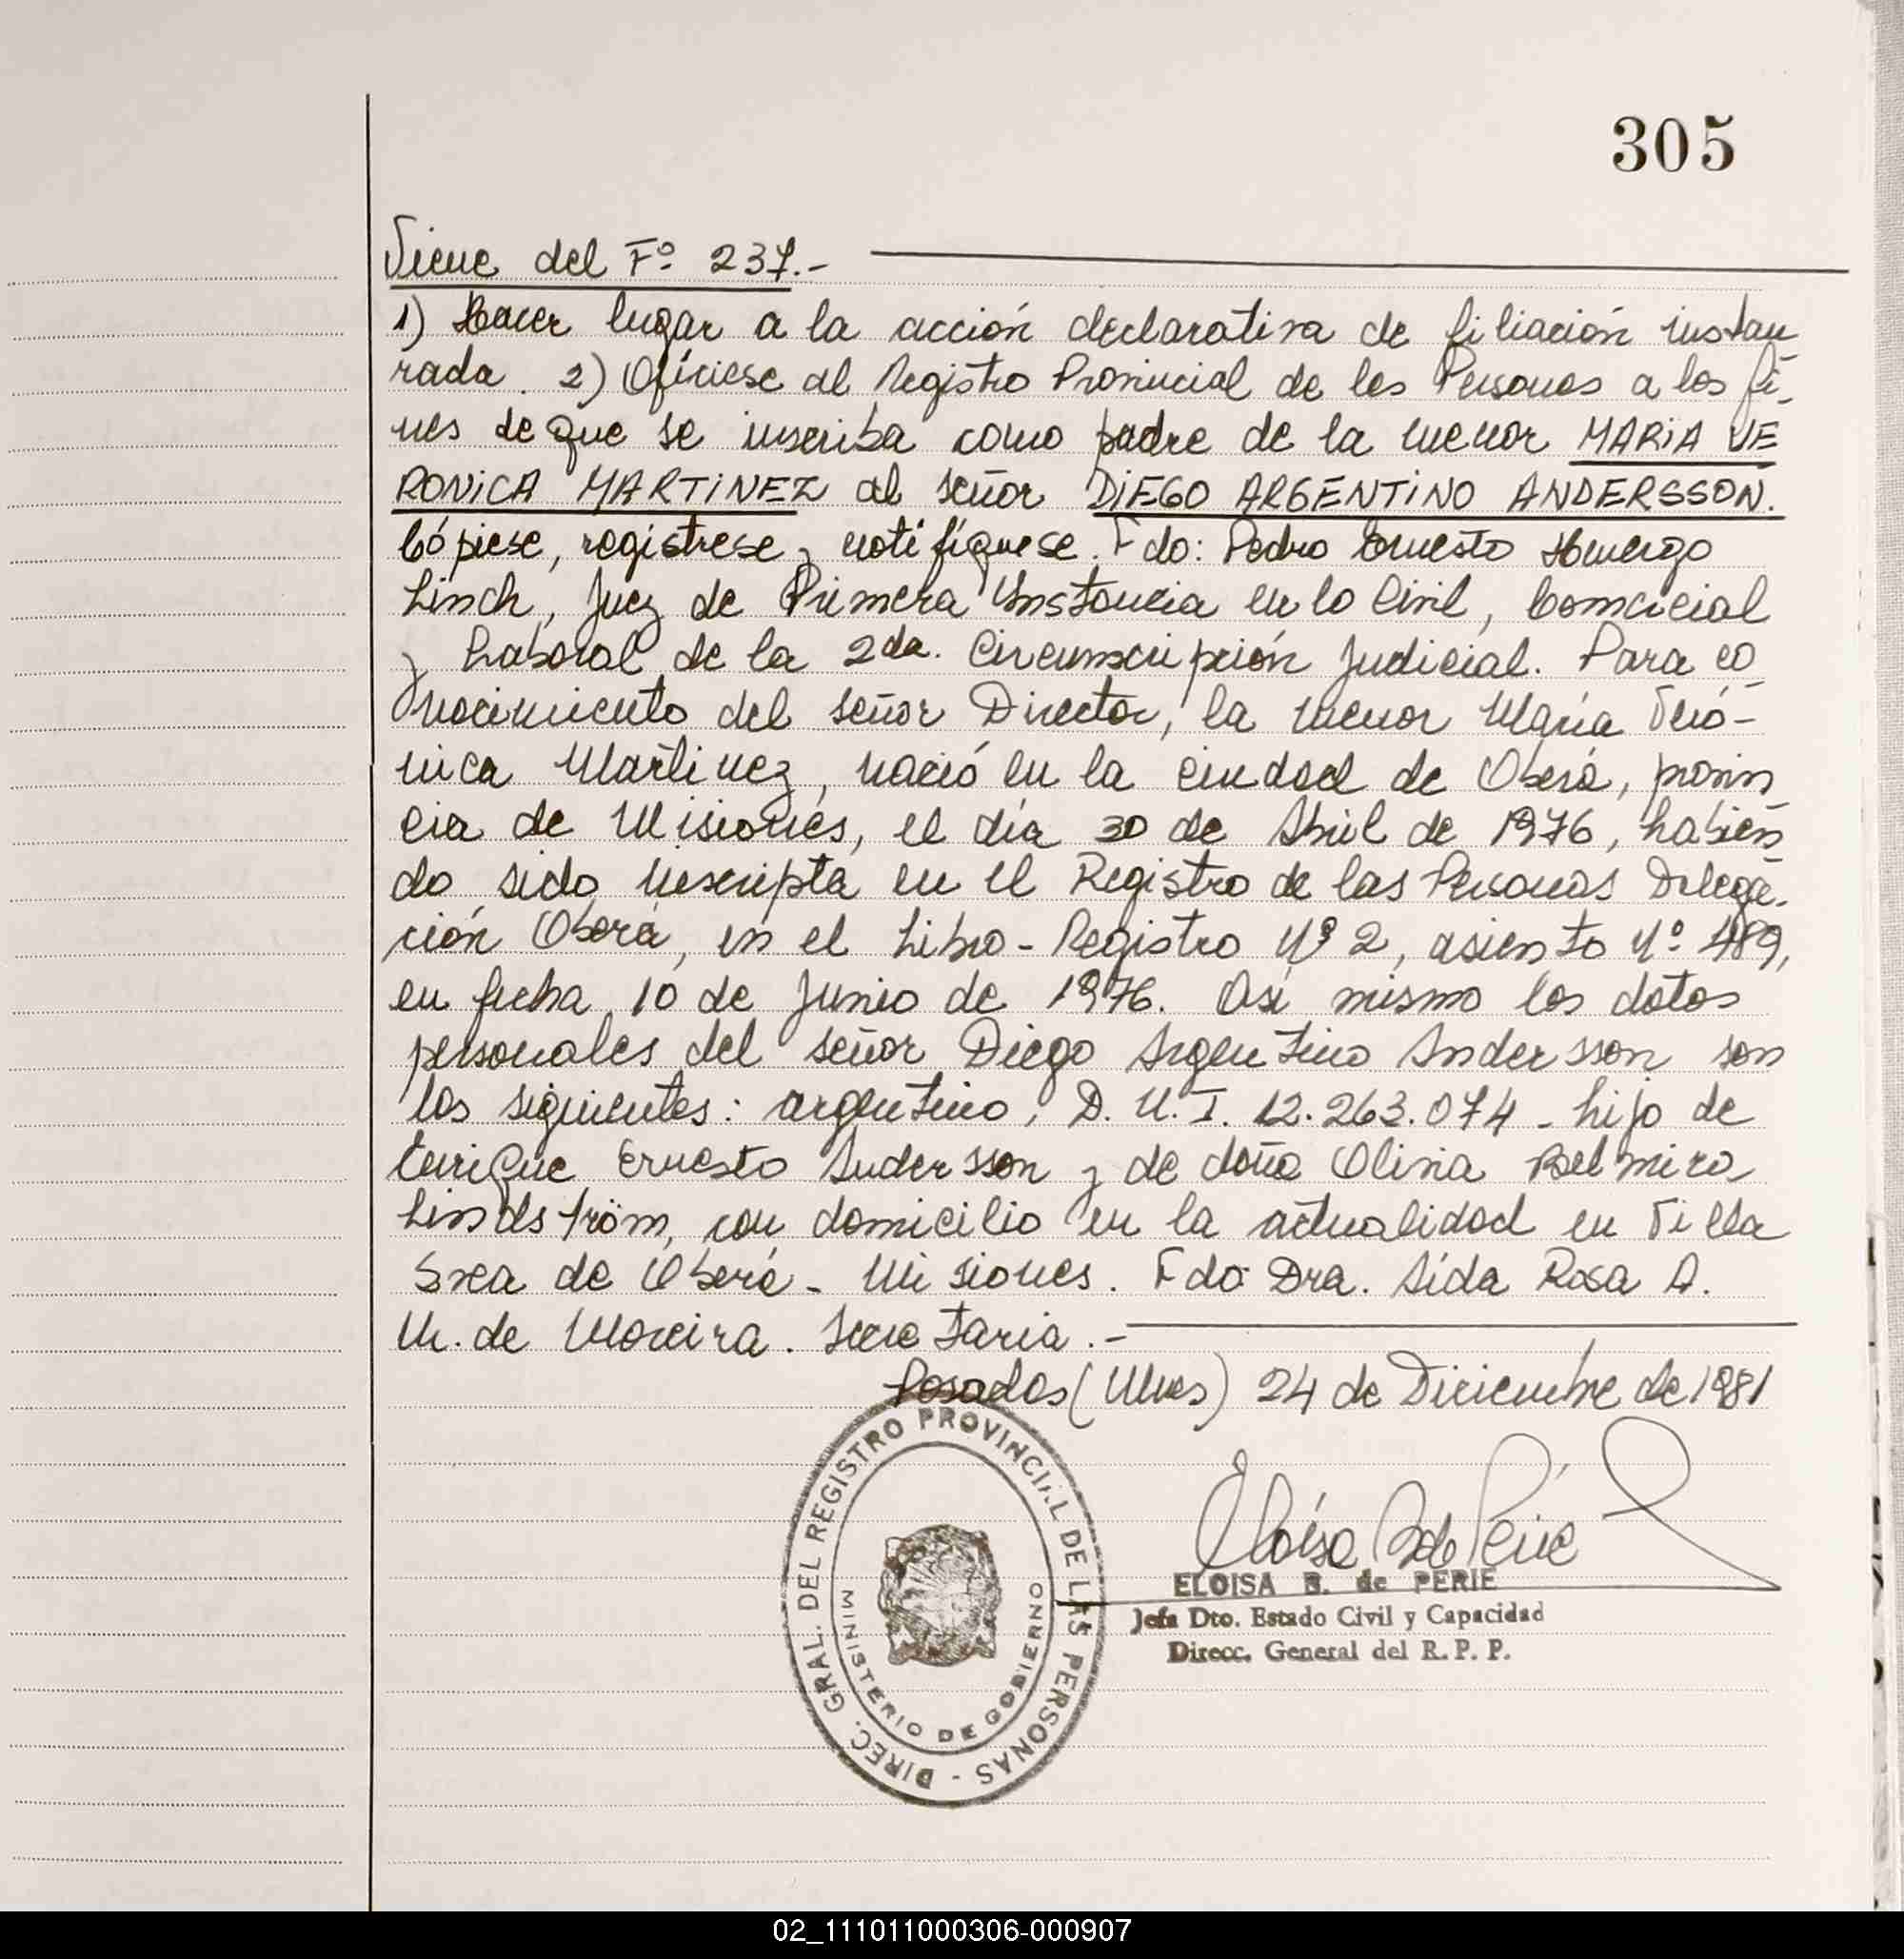 305
Viene del Fº 237.-
1) Hacer lugar a la acción declarativa de filiación instau
rada. 2) Ofíciese al Registro Provincial de las Personas a los fi_
nes de que se inscriba como padre de la menor MARIA VE
RONICA MARTINEZ al señor DIEGO ARGENTINO ANDERSSON.
Cópiese, regístrese y notifíquese. Fdo: Pedro Ernesto
Linch, Juez de Primera Instancia en lo Civil, Comercial
y Laboral de la 2da. Circunscripción Judicial. Para co_
nocimiento del señor Director, la menor María Veró-
nica Martinez, nació en la ciudad de Oberá, provin
cia de Misiones, el día 30 de Abril de 1976, habien_
do sido inscripta en el Registro de las Personas Delega_
ción Oberá, en el Libro-Registro Nº 2, asiento Nº 489,
en fecha 10 de Junio de 1976. Así mismo los datos
personales del señor Diego Argentino Andersson son
los siguientes: argentino, D.N.I. 12.263.074 - hijo de
Enrique Ernesto Andersson y de doña Olivia Belmira
Lindström, con domicilio en la actualidad en Villa
Svea de Oberá - Misiones. Fdo Dra. Aída Rosa A.
M. de Moreira. Secretaria.-
Posadas (Mnes) 24 de Diciembre de 1981
DIREC. GRAL. DEL REGISTRO PROVINCIAL DE LAS PERSONAS -
MINISTERIO DE GOBIERNO
Eloísa B de Perié
ELOISA B. de PERIE
Jefa Dto. Estado Civil y Capacidad
Direcc. General del R. P. P.
02_111011000306-000907